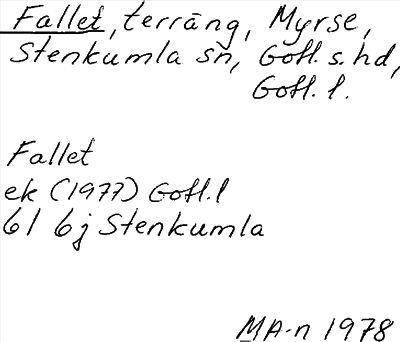 Fallet, terräng, Myrse,
Stenkumla sn, Gotl. s. hd,
Gotl. l.
Fallet
ek (1977) Gotl. l
6I 6j Stenkumla
MA-n 1978